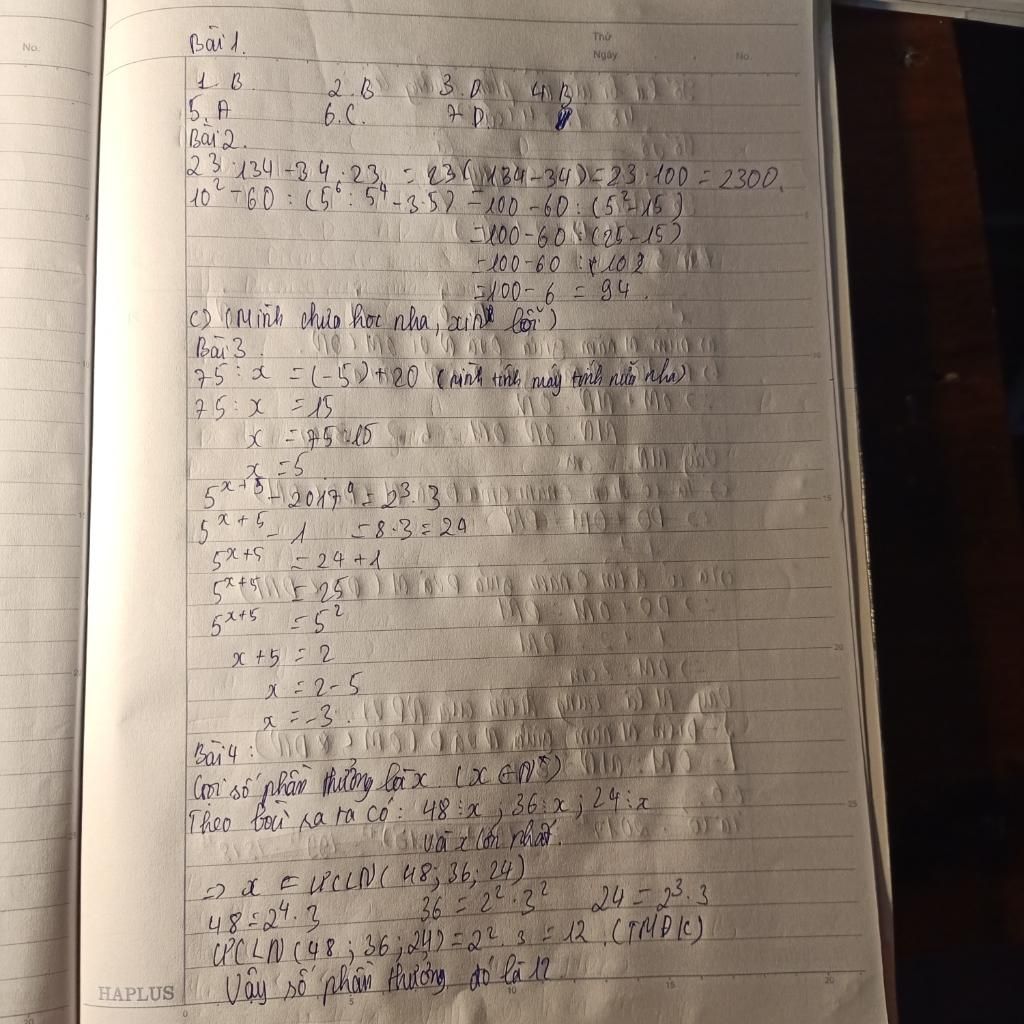 No.
Thứ
Ngày
No.
Bài 1.
1. B. 2. B 3. D 4. B
5. A 6. C. 7 D.
Bài 2.
23 . 134 - 34 . 23 = 23 ( 134 - 34 ) = 23 . 100 = 2300.
10² - 60 : (5⁶ : 5⁴ - 3.5) = 100 - 60 : (5² - 15)
= 100 - 60 : (25 - 15)
= 100 - 60 : 10
= 100 - 6 = 94.
c) (Mình chưa học nha, xin lỗi)
Bài 3.
75 : x = (-5) + 20 (mình tính máy tính nữa nha)
75 : x = 15
x = 75 : 15
x = 5
5ˣ⁺⁵ - 2017⁰ = 2³ . 3
5ˣ⁺⁵ - 1 = 8 . 3 = 24
5ˣ⁺⁵ = 24 + 1
5ˣ⁺⁵ = 25
5ˣ⁺⁵ = 5²
x + 5 = 2
x = 2 - 5
x = -3.
Bài 4 :
Gọi số phần thưởng là x (x ∈ N*)
Theo bài ra ra có : 48 ⋮ x ; 36 ⋮ x ; 24 ⋮ x
và x lớn nhất.
=> x = ƯCLN( 48; 36; 24)
48 = 2⁴ . 3 36 = 2² . 3² 24 = 2³ . 3
ƯCLN (48 ; 36 ; 24) = 2² . 3 = 12 . (TMĐK)
Vậy số phần thưởng đó là 12
HAPLUS 0 5 10 15 20